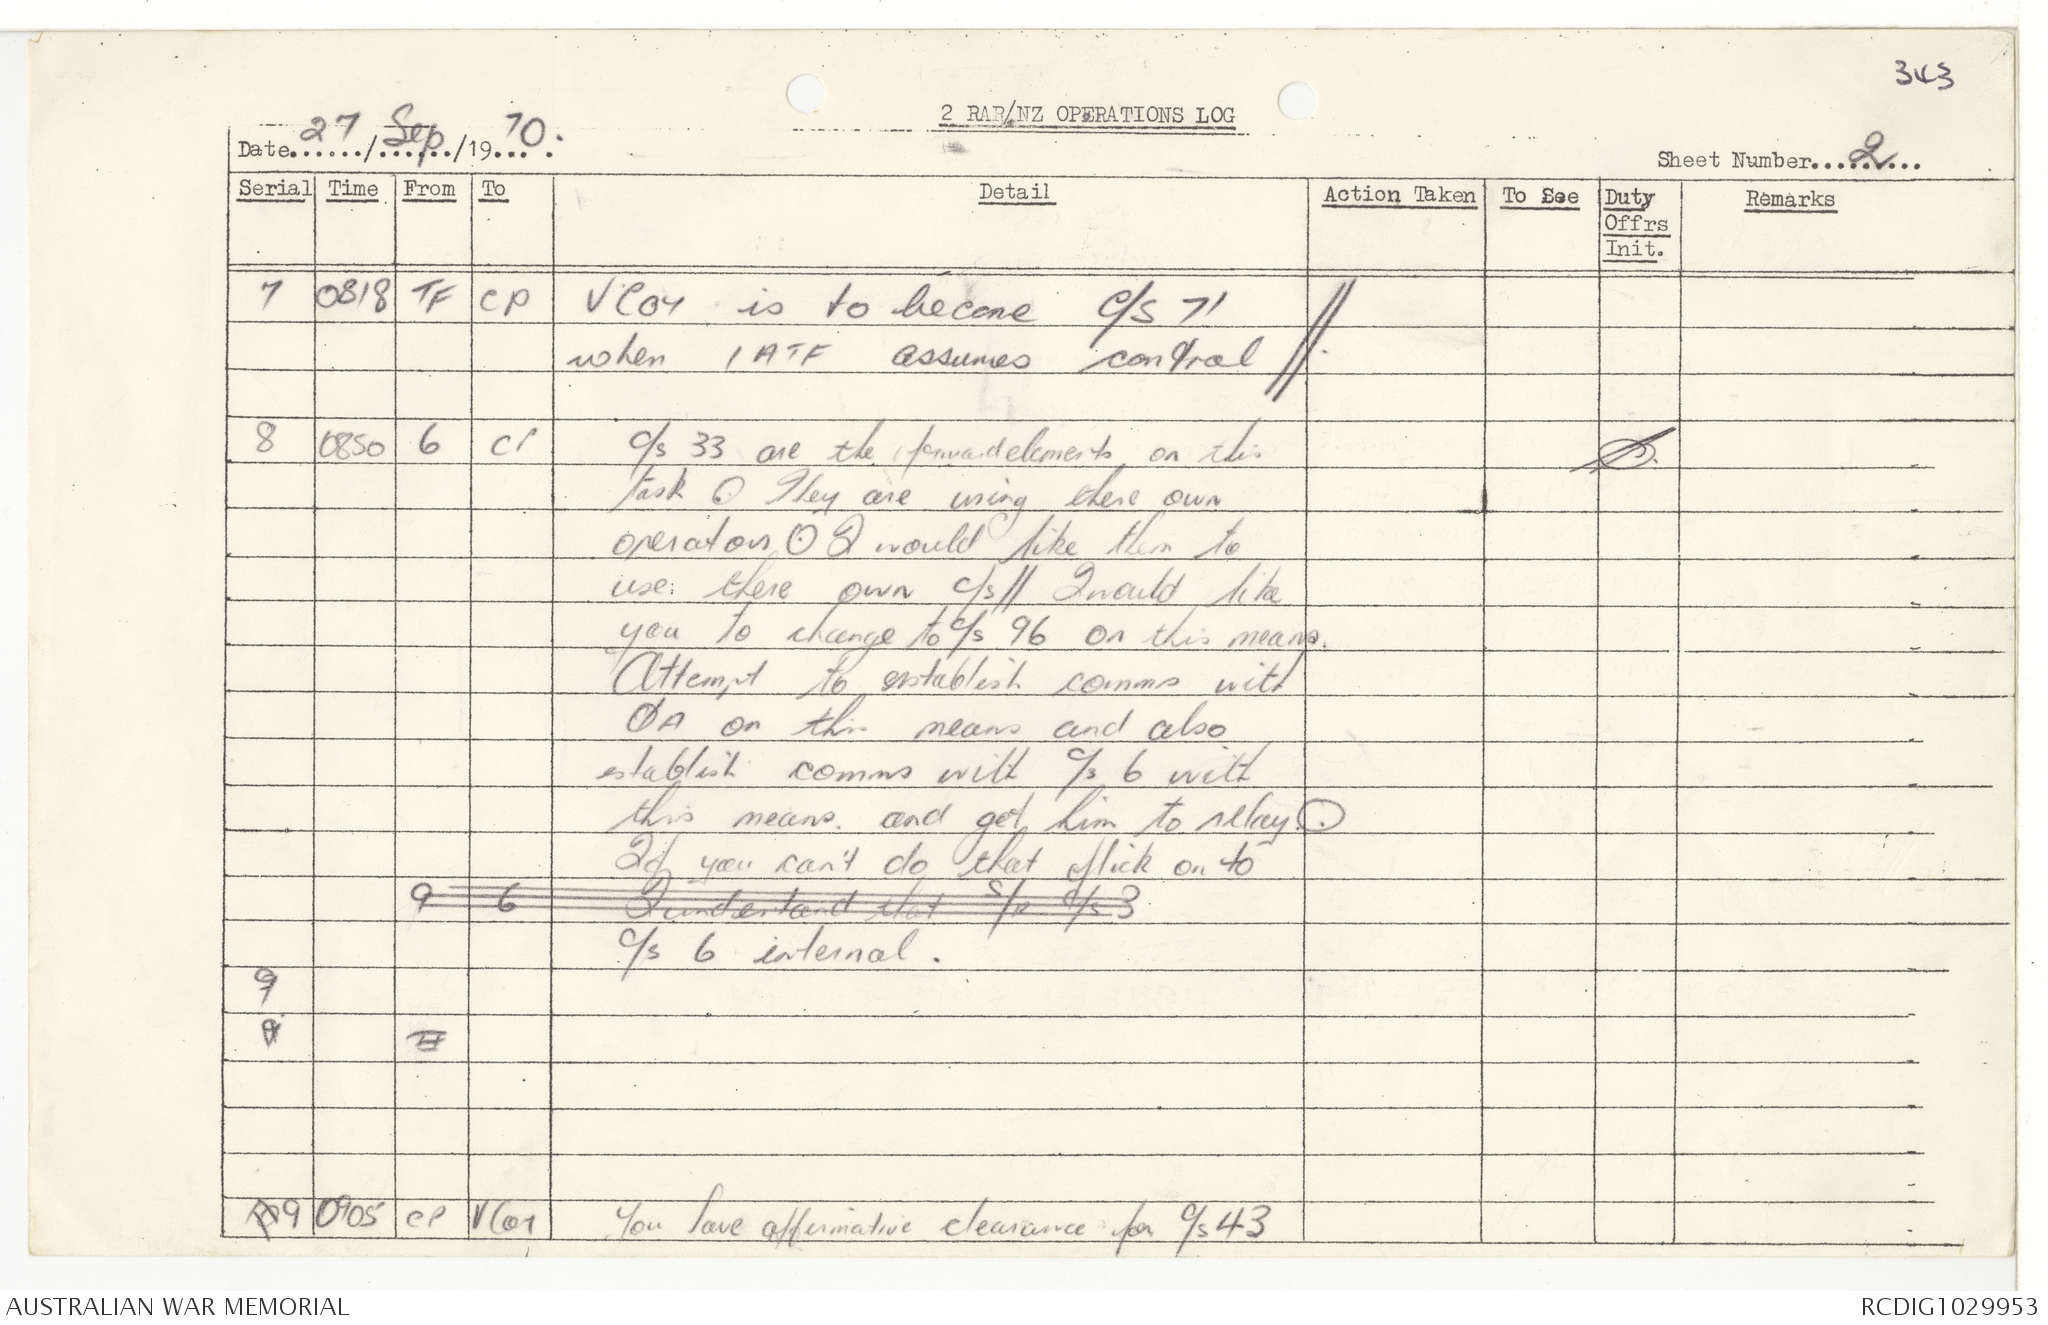 343
2 RAR/NZ OPERATIONS LOG
Date 27/Sep/1970.
Sheet Number 2
Serial Time From To Detail Action Taken To See Duty Offrs Init. Remarks
7 0818 TF CP V Coy is to become c/s 71
when 1 ATF assumes control //
8 0850 6 CP c/s 33 are the forward elements on this
task ⊙ They are using there own
operators ⊙ I would like them to
use there own c/s // I would like
you to change to c/s 96 on this means.
Attempt to establish comms with
0A on this means and also
establish comms with c/s 6 with
this means. and get him to relay ⊙
If you can't do that flick on to
9 6 I understand that S/R c/s 3
c/s 6 internal.
9
9
9 0905 CP V Coy You have affirmative clearance for c/s 43
AUSTRALIAN WAR MEMORIAL
RCDIG1029953